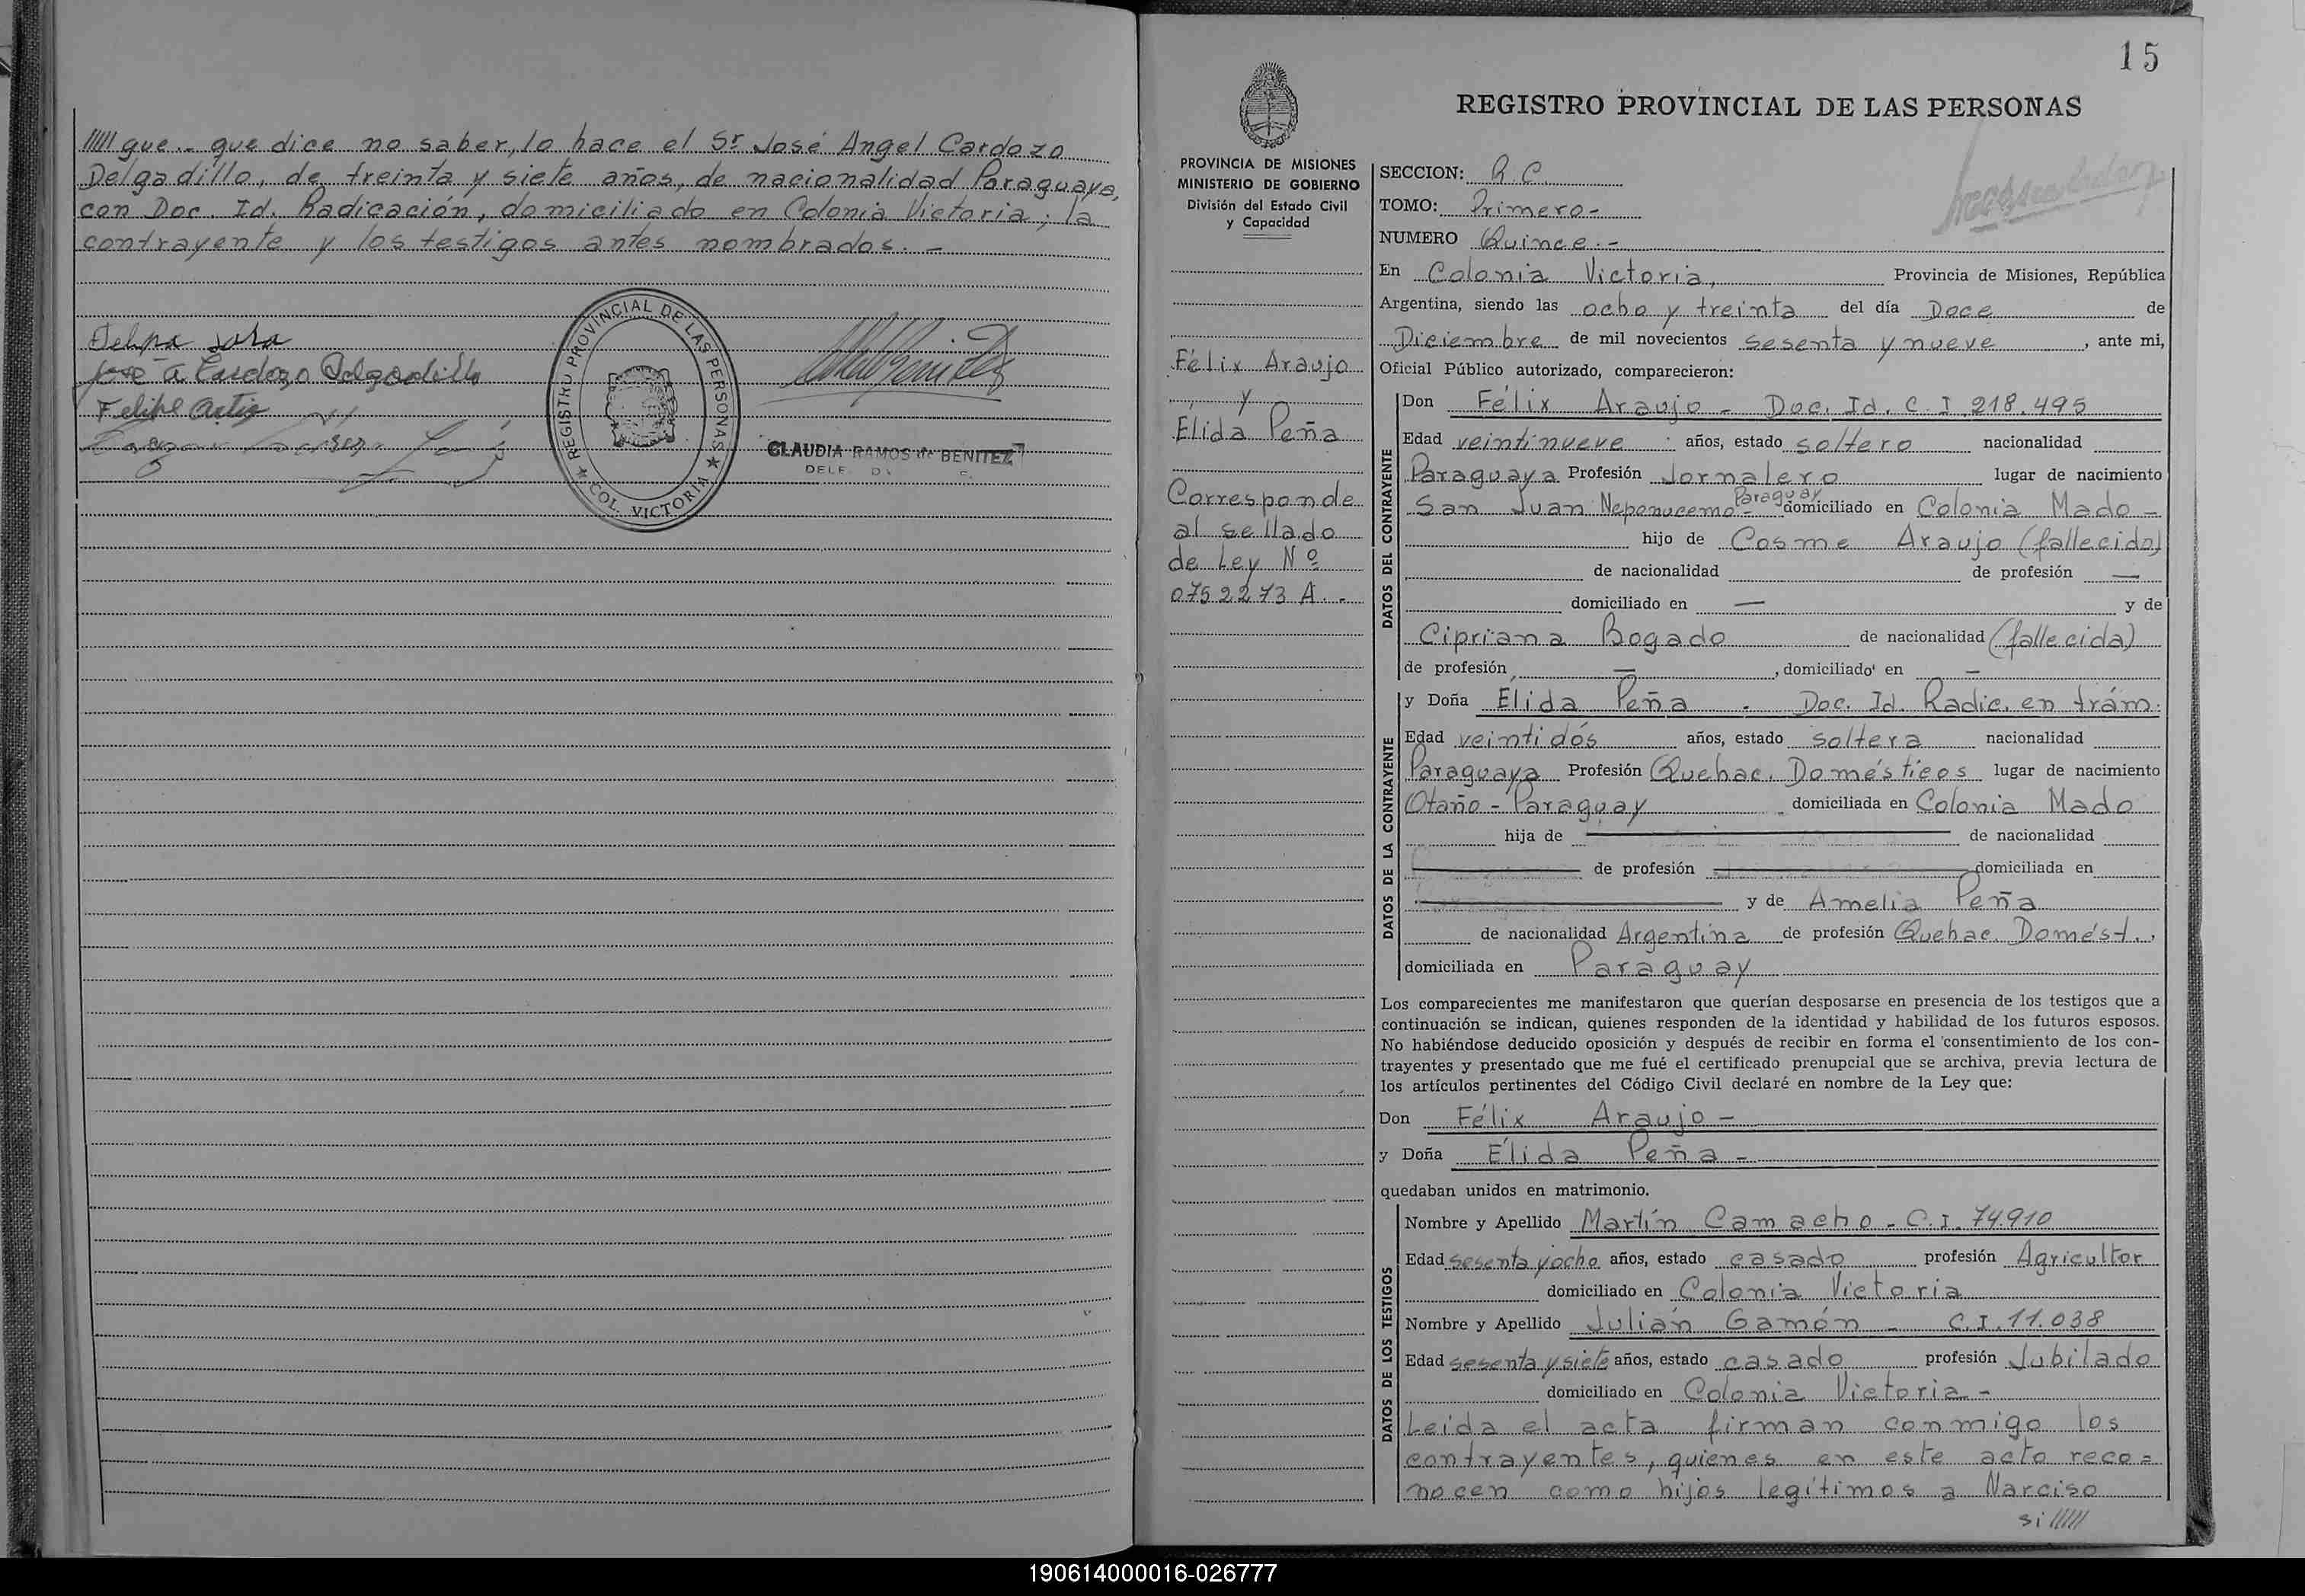 ///// gue.- que dice no saber, lo hace el Sr José Angel Cardozo
Delgadillo, de treinta y siete años, de nacionalidad Paraguaya,
con Doc. Id. Radicación, domiciliado en Colonia Victoria; la
contrayente y los testigos antes nombrados. -
José A Cardozo Delgadillo
REGISTRO PROVINCIAL DE LAS PERSONAS
COL. VICTORIA
CLAUDIA RAMOS de BENITEZ
15
REGISTRO PROVINCIAL DE LAS PERSONAS
PROVINCIA DE MISIONES
MINISTERIO DE GOBIERNO
División del Estado Civil
y Capacidad
Félix Araujo
y
Élida Peña
Corresponde
al sellado
de Ley Nº
0752273 A. -
SECCION: R.C.
TOMO: Primero-
NUMERO Quince.-
En Colonia Victoria, Provincia de Misiones, República
Argentina, siendo las ocho y treinta del día Doce de
Diciembre de mil novecientos sesenta y nueve, ante mi,
Oficial Público autorizado, comparecieron:
DATOS DEL CONTRAYENTE
Don Félix Araujo - Doc. Id. C.I 218.495
Edad veintinueve años, estado soltero nacionalidad
Paraguaya Profesión Jornalero lugar de nacimiento
San Juan Neponucemo - Paraguay domiciliado en Colonia Mado -
hijo de Cosme Araujo (fallecido)
de nacionalidad de profesión —
domiciliado en — y de
Cipriana Bogado de nacionalidad (fallecida)
de profesión, —, domiciliado en —
DATOS DE LA CONTRAYENTE
y Doña Élida Peña - Doc. Id. Radic. en trám.
Edad veintidós años, estado soltera nacionalidad
Paraguaya Profesión Quehac. Domésticos lugar de nacimiento
Otaño - Paraguay domiciliada en Colonia Mado
hija de — de nacionalidad
— de profesión — domiciliada en
— y de Amelia Peña
de nacionalidad Argentina de profesión Quehac. Domést.,
domiciliada en Paraguay
Los comparecientes me manifestaron que querían desposarse en presencia de los testigos que a
continuación se indican, quienes responden de la identidad y habilidad de los futuros esposos.
No habiéndose deducido oposición y después de recibir en forma el consentimiento de los con-
trayentes y presentado que me fué el certificado prenupcial que se archiva, previa lectura de
los artículos pertinentes del Código Civil declaré en nombre de la Ley que:
Don Félix Araujo -
y Doña Élida Peña -
quedaban unidos en matrimonio.
DATOS DE LOS TESTIGOS
Nombre y Apellido Martín Camacho - C.I. 74.910
Edad sesenta y ocho años, estado casado profesión Agricultor
domiciliado en Colonia Victoria
Nombre y Apellido Julián Gamón - C.I. 11.038
Edad sesenta y siete años, estado casado profesión Jubilado
domiciliado en Colonia Victoria -
Leida el acta firman conmigo los
contrayentes, quienes en este acto reco=
nocen como hijos legítimos a Narciso
si /////
190614000016-026777